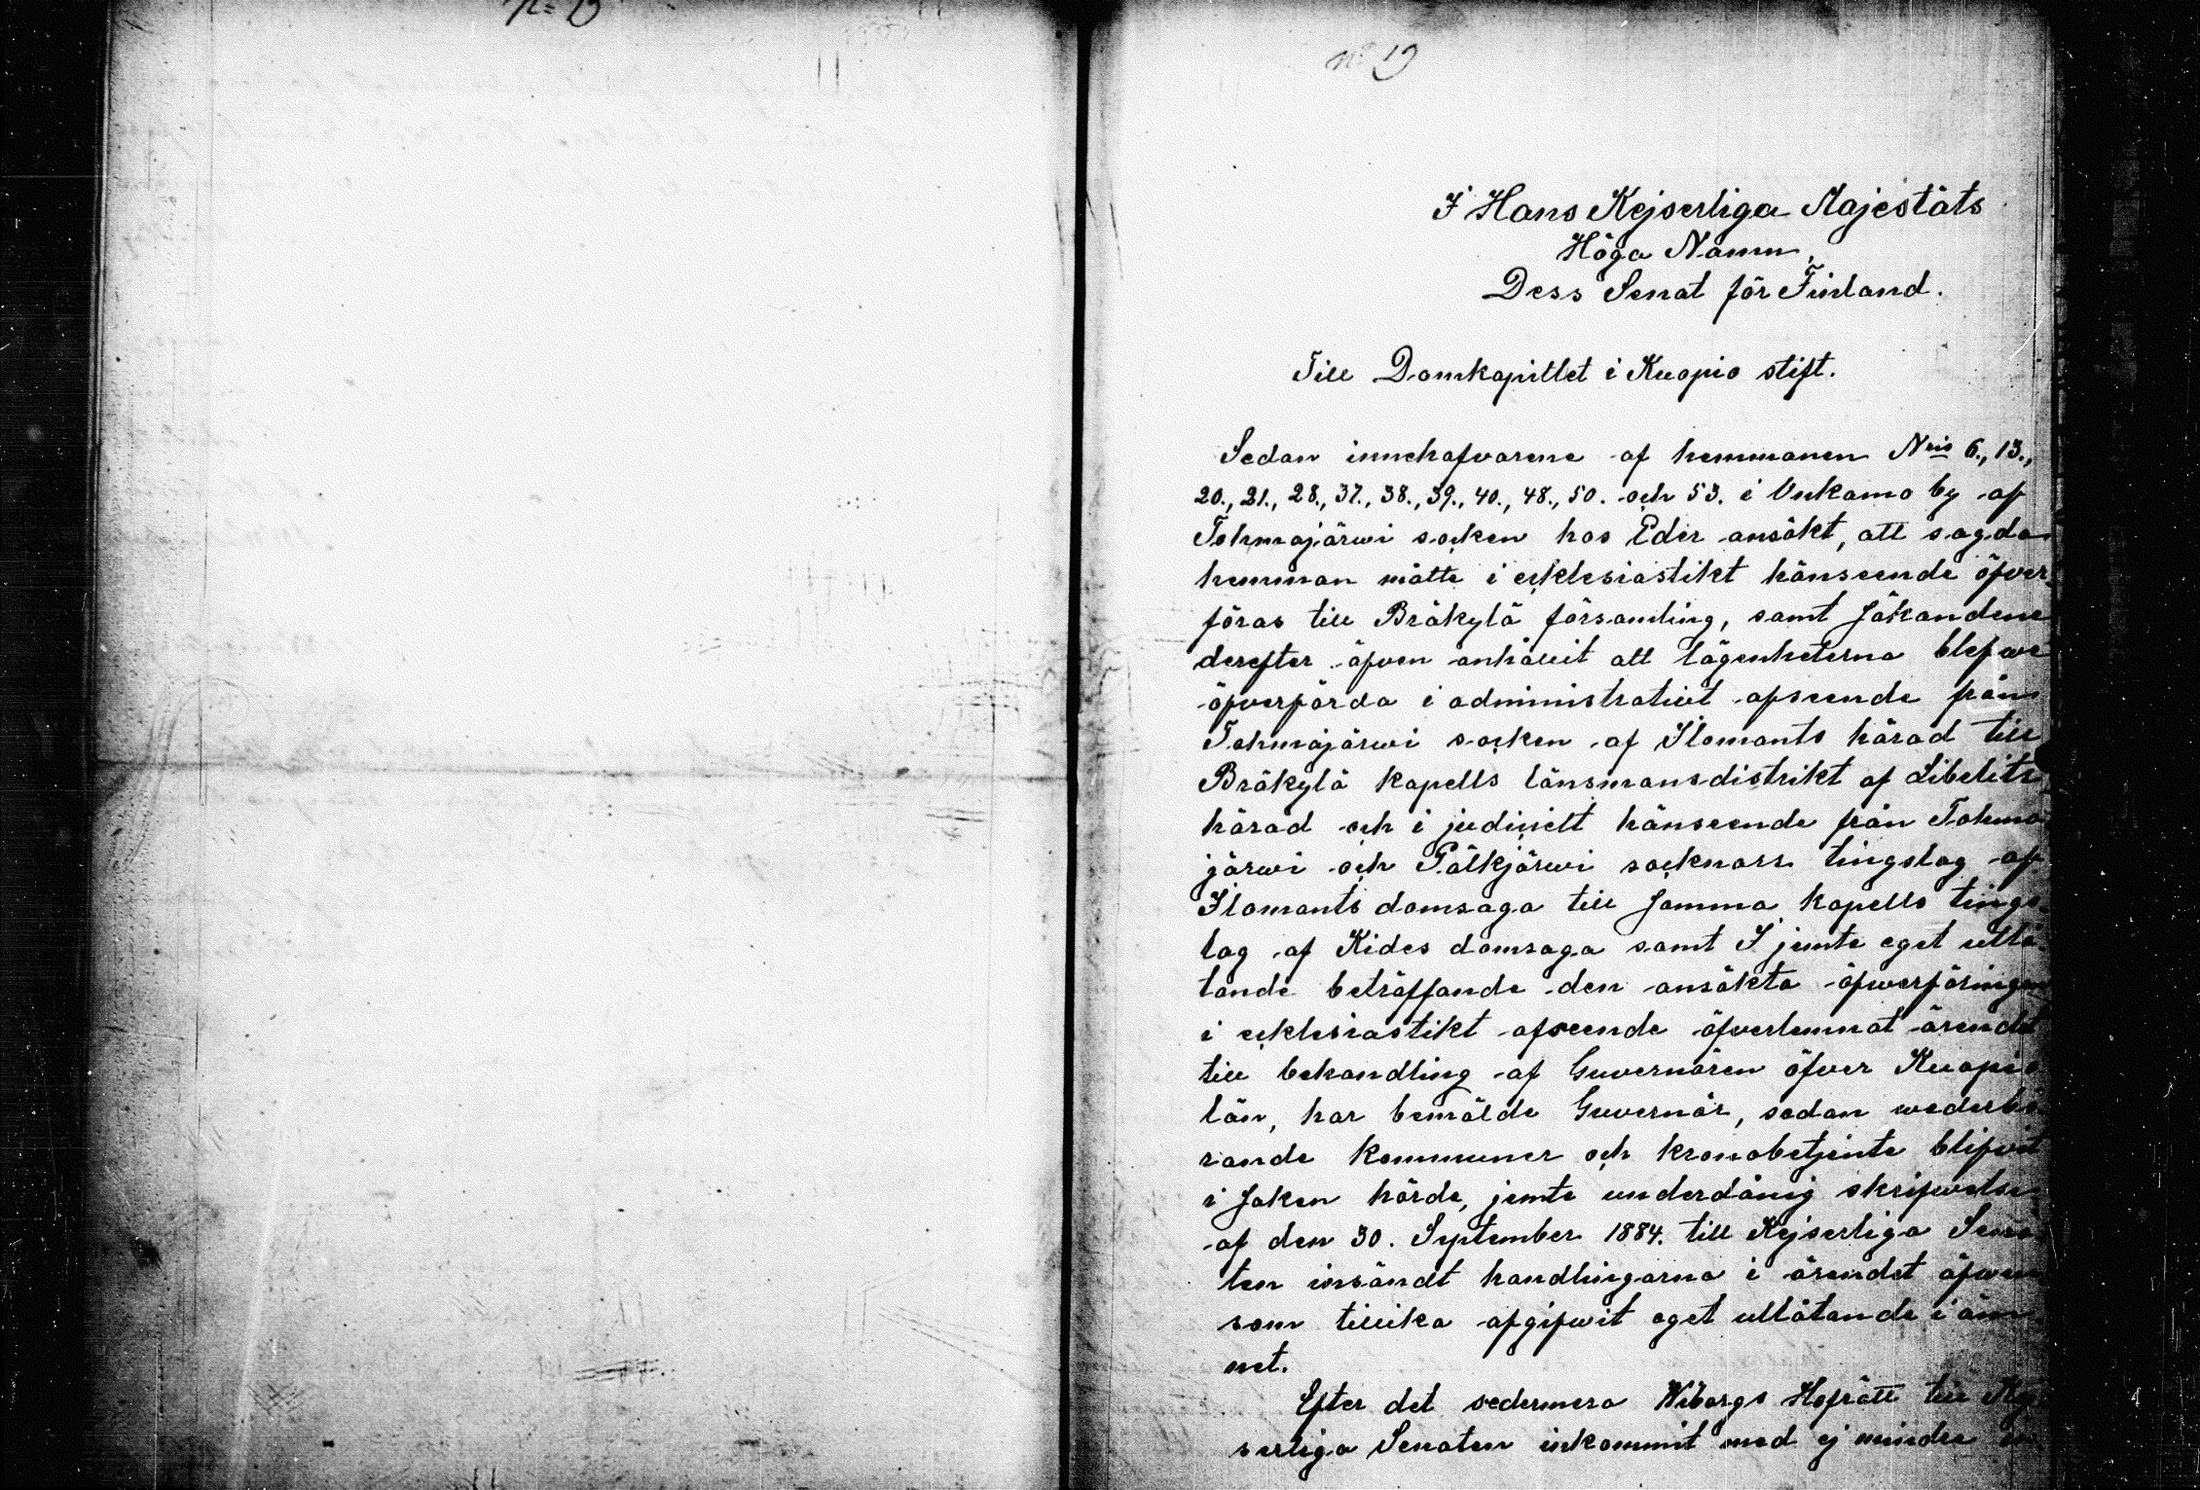 n: 19
No 19
I Hans Kejserliga Majestäts
Höga Namn,
Dess Senat för Finland.
Till Domkapitlet i Kuopio stift.
Sedan innehafvarene af hemmanen Nris 6., 13.,
20., 21., 28., 37., 38., 39., 40., 48., 50. och 53. i Onkamo by af
Tohmajärwi socken hos Eder ansökt, att sagda
hemman måtte i ecklesiastikt hänseende öfver-
föras till Bräkylä församling, samt sökandene
derefter äfven anhållit att lägenheterna blefwe
öfverförda i administrativt afseende från
Tohmajärwi socken af Ilomants härad till
Bräkylä kapells länsmansdistrikt af Libelits
härad och i judicielt hänseende från Tohma-
järwi och Pälkjärwi socknars tingslag af
Ilomants domsaga till samma kapells tings-
lag af Kides domsaga samt I jemte eget utlå-
tande beträffande den ansökta öfwerföringen
i ecklesiastikt afseende öfverlemnat ärendet
till behandling af Guvernören öfver Kuopio
län, har bemälde Guvernör, sedan wederbö-
rande kommuner och kronobetjente blifvit
i saken hörde, jemte underdånig skrifwelse
af den 30. September 1884. till Kejserliga Sena-
ten insändt handlingarna i ärendet äfwen
som tillika afgifwit eget utlåtande i äm-
net.
Efter det sedermera Wiborgs Hofrätt till Kej-
serliga Senaten inkommit med ej mindre